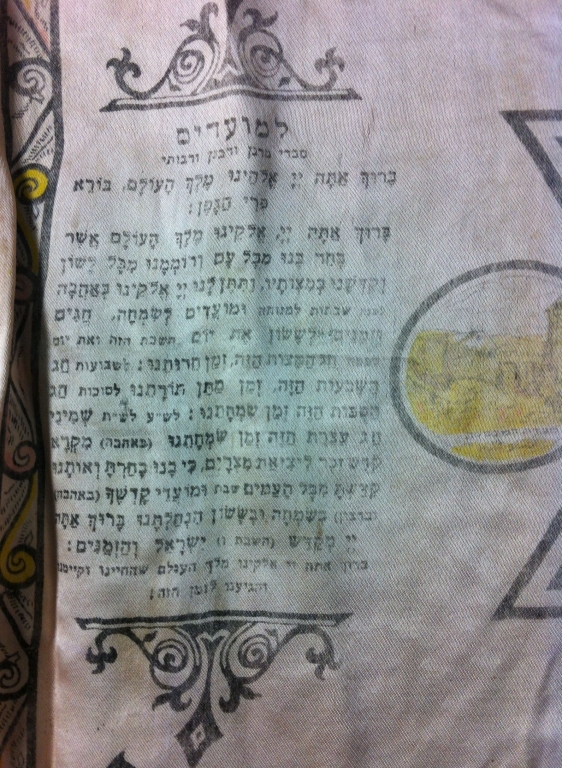 למועדים
סברי מרנן ורבנן ורבותי
בָּרוּךְ אַתָּה יְיָ אֱלֹהֵינוּ מֶלֶךְ הָעוֹלָם, בּוֹרֵא
פְּרִי הַגָּפֶן:
בָּרוּךְ אַתָּה יְיָ, אֱלֹקֵינוּ מֶלֶךְ הָעוֹלָם אֲשֶׁר
בָּחַר בָּנוּ מִכָּל עָם וְרוֹמְמָנוּ מִכָּל לָשׁוֹן
וְקִדְּשָׁנוּ בְּמִצְוֹתָיו, וַתִּתֶּן לָנוּ יְיָ אֱלֹקֵינוּ בְּאַהֲבָה
שבתות למנוחה וּמוֹעֲדִים לְשִׂמְחָה, חַגִּים
וּזְמַנִּים לְשָׂשׂוֹן אֶת יוֹם השבת הזה ואת יום
חַג הַמַּצּוֹת הַזֶּה, זְמַן חֵרוּתֵנוּ: לשבועות חַג
הַשָּׁבֻעוֹת הַזֶּה, זְמַן מַתַּן תּוֹרָתֵנוּ לסוכות חַג
הַסֻּכּוֹת הַזֶּה זְמַן שִׂמְחָתֵנוּ: לש״ע לש״ת שְׁמִינִי
חַג עֲצֶרֶת הַזֶּה זְמַן שִׂמְחָתֵנוּ (באהבה) מִקְרָא
קֹדֶשׁ זֵכֶר לִיצִיאַת מִצְרָיִם, כִּי בָנוּ בָחַרְתָּ וְאוֹתָנוּ
קִדַּשְׁתָּ מִכָּל הָעַמִּים שבת וּמוֹעֲדֵי קָדְשֶׁךָ (באהבה
וברצון) בְּשִׂמְחָה וּבְשָׂשׂוֹן הִנְחַלְתָּנוּ בָּרוּךְ אַתָּה
יְיָ מְקַדֵּשׁ (השבת ו) יִשְׂרָאֵל וְהַזְּמַנִּים:
ברוך אתה יי אלקינו מלך העולם שהחיינו וקיימנו
והגיענו לזמן הזה: